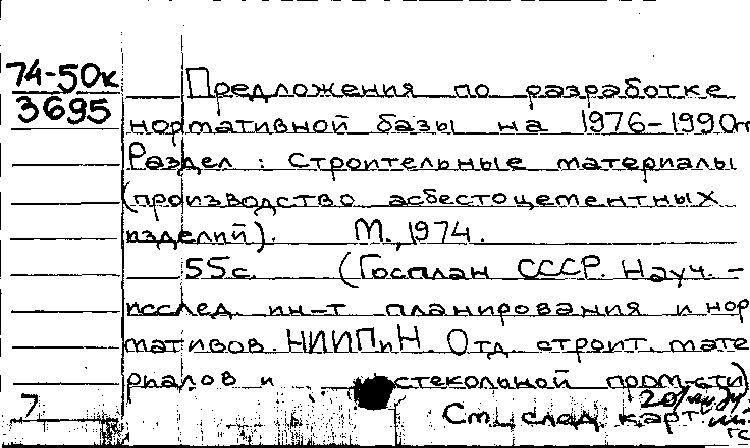 74-50к
3695
Предложения по разработке
нормативной базы на 1976-1990гг
Раздел: Строительные материалы
(производство асбестоцементных
изделий). М., 1974.
55с. (Госплан СССР. Науч.-
исслед. ин-т планирования и нор
мативов. НИИПиН. Отд. строит. мате
риалов и стекольной пром-сти)
7
См. след. карт.